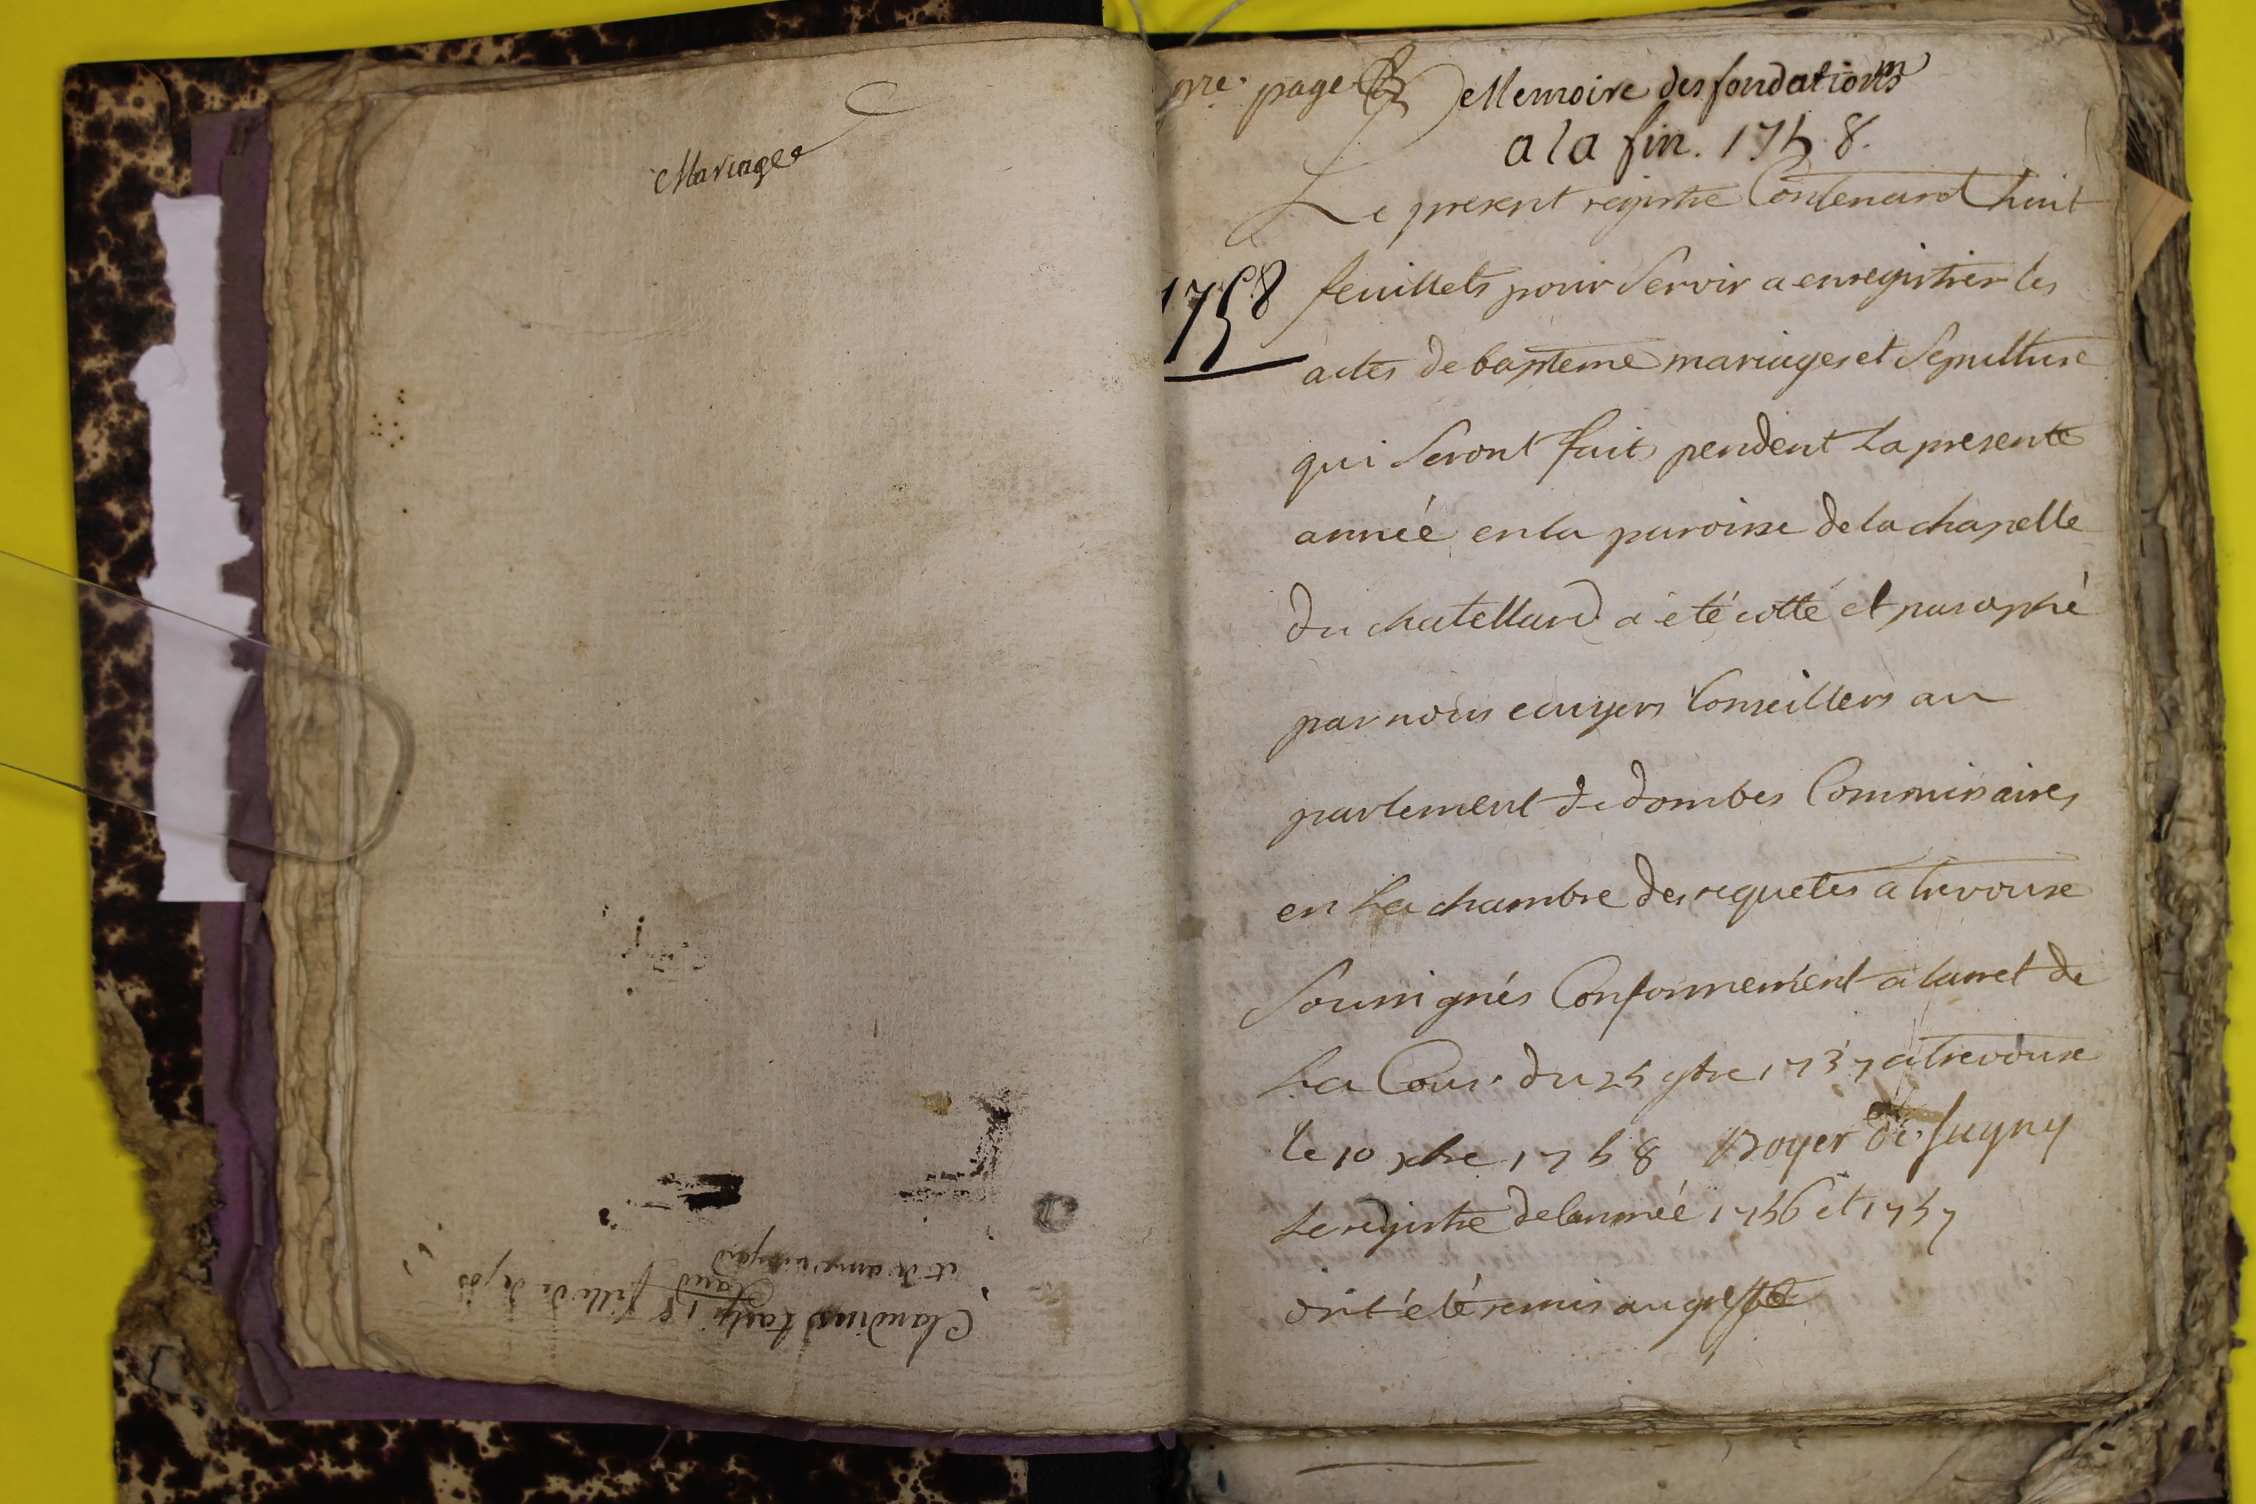 Mariage
pre. page
Memoire des fondations
a la fin. 1758.
1758
Le present registre Contenant huit
feuillets pour servir a enregistrer les
actes de bapteme mariages et Sepulture
qui seront faits pendent La presente
année en la paroisse de la chapelle
du chatellard a été cotté et paraphé
par nous ecuyers Conseillers au
parlement de dombes Commissaires
en La chambre des requetes a trevoux
Soussignés Conformement a larret de
La Cour du 25 9bre 1737 a trevoux
le 10 xbre 1758 Boyer de Sugny
Le registre de lannée 1756 et 1757
ont été remis au greffe
Claudine
fille de
et de anne